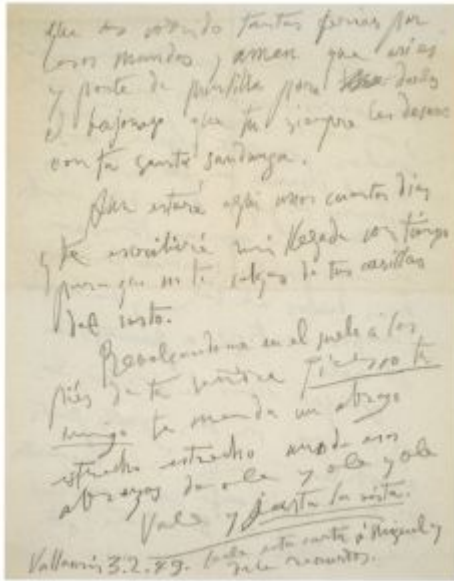 que as corrido tantas ferias por
esos mundos y aman que
y ponte de puntilla para darles
el bajonazo que tu siempre les deseas
con tu santa sandunga.
Aun estaré aqui unos cuantos dias
y te escribiré mi llegada con tiempo
para que no te salgas de tus casillas
del susto.
Revolcandome en el suelo á los
piés de tu Picasso tu
amigo te manda un abrazo
estrecho estrecho uno de esos
abrazos de ole y ole y ole
Vale y jasta la vista.
Vallauris 3.2.49. esta carta á Miguel y
dale recuerdos.